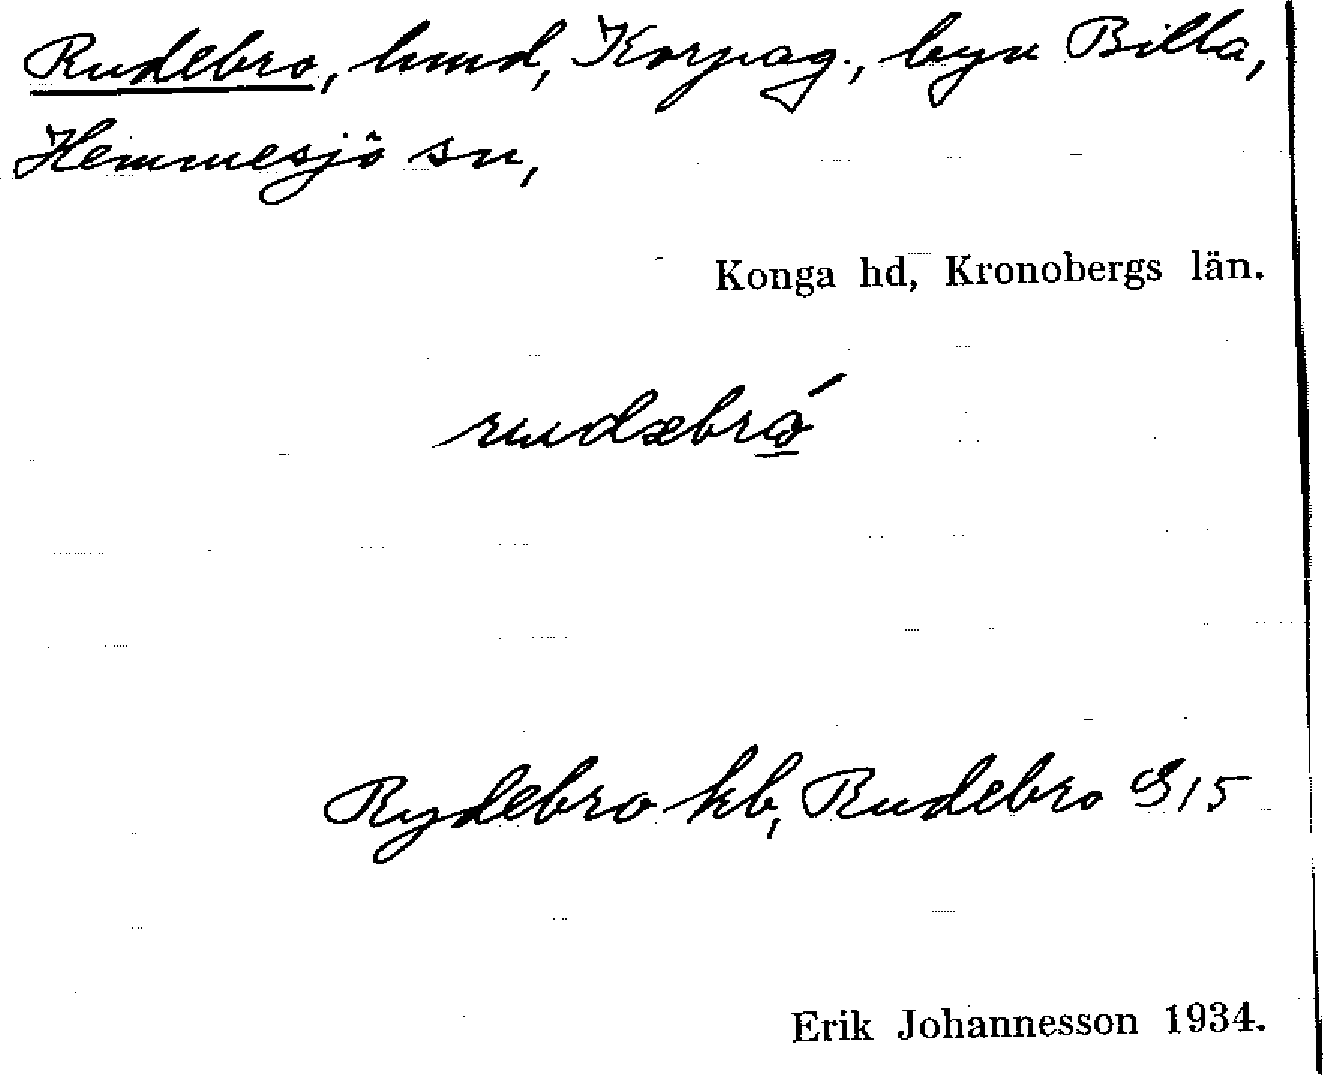 Rudebro, hmd, Korpag., byn Billa,
Hemmesjö sn,
Konga hd, Kronobergs län.
rudæbró
Rydebro kb, Rudebro G15
Erik Johannesson 1934.